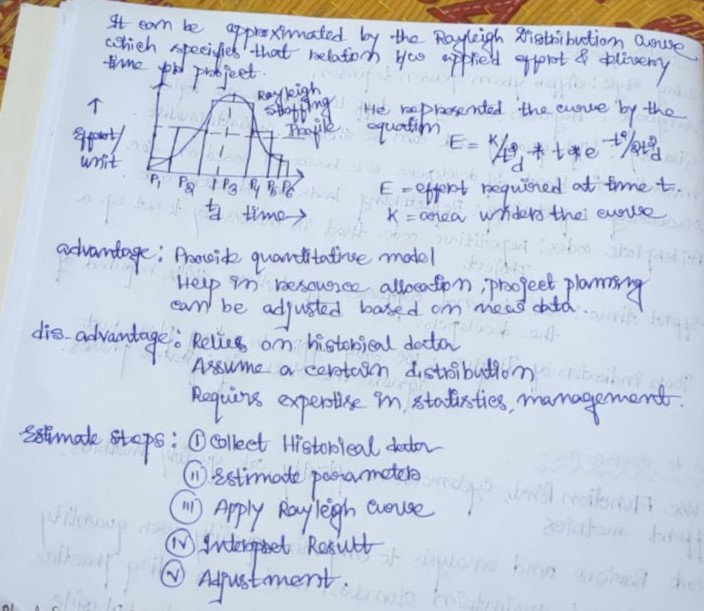 It can be approximated by the Rayleigh Distribution Curve
which specifies that relation b/w applied effort & delivery
time for project.
Rayleigh
Staffing
Profile
↑
Effort/
unit
P1 P2 P3 P4 P5 P6
td time→
He represented the curve by the
equation
E = K/t²d * t * e^-t²/2t²d
E = effort required at time t.
K = area under the curve
advantage: Provide quantitative model
Help in resource allocation, project planning
can be adjusted based on new data.
dis-advantage: Relies on historical data
Assume a certain distribution
Requirs expertise in statistics, management.
Estimate steps: (i) Collect Historical data
(ii) Estimate parameters
(iii) Apply Rayleigh curve
(iv) Interpret Result
(v) Adjustment.